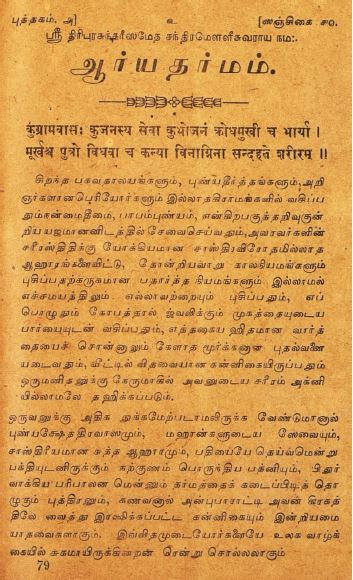 புத்தகம். அ] ௨ [ஸஞ்சிகை ௪0.
ஸ்ரீ திரிபுரசுந்தரீஸமேத சந்திரமௌளீசுவராய நம:.
ஆர்யதர்மம்.
कुग्रामवासः कुजनस्य सेवा कुभोजनं क्रोधमुखी च भार्या ।
मूर्खश्च पुत्रो विधवा च कन्या विनाग्निना सन्दहते शरीरम् ॥
சிறந்த பகவதாலயங்களும், புண்யதீர்த்தங்களும்,அறி
ஞர்களானபெரியோர்களும் இல்லாதகிராமங்களில் வசிப்ப
தும்நன்மைதீமை, பாபம்புண்யம், என்கிறபகுத்தறிவுகுன்
றியயஜமானனிடத்தில் சேவைசெய்வதும்,அவரவர்களின்
சரீரஸ்திதிக்கு யோக்கியமான சாஸ்திரவிரோதமில்லாத
ஆஹாரங்களைவிட்டு, தோன்றியவாறு காலநியமங்களும்
புசிப்பதற்கருகமான பதார்த்த நியமங்களும் இல்லாமல்
எச்சமயத்திலும் எல்லாவற்றையும் புசிப்பதும், எப்
பொழுதும் கோபத்தால் ஜ்வலிக்கும் முகத்தையுடைய
பார்யையுடன் வசிப்பதும், எத்தகைய ஹிதமான வார்த்
தையைச் சொன்னாலும் கேளாத மூர்க்கனான புதல்வனை
யடைவதும், வீட்டில் விதவையான கன்னிகையிருப்பதும்
ஒருமனிதனுக்கு நேருமாகில் அவனுடைய சரீரம் அக்னி
யில்லாமலே தஹிக்கப்படும்.
ஒருவனுக்கு அதிக துக்கமேற்படாமலிருக்க வேண்டுமானால்
புண்யக்ஷேத்திரவாஸமும், மஹான்களுடைய ஸேவையும்,
சாஸ்திரீயமான சுத்த ஆஹாரமும், பதியையே தெய்வமென்று
பக்தியுடனிருக்கும் கற்குணம் பொருந்திய பத்னியும், பிதுர்
வாக்கிய பரிபாலன மென்னும் தர்மத்தைக் கடைப்பிடித் தொ
ழுகும் புத்திரனும், கணவனால் அன்புபாராட்டி அவன் கிரகத்
திலே வைத்து இரக்ஷிக்கப்பட்ட கன்னிகையும் இன்றியமை
யாதவைகளாகும். இவ்விதமுடையோர்களையே உலக வாழ்க்
கையில் சுகமாயிருக்கின்றன ரென்று சொல்லலாகும்
79